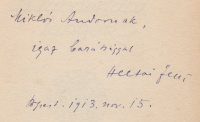 Miklós Andornak,
igaz barátsággal
Heltai Jenő
Bpest. 1913. nov. 15.